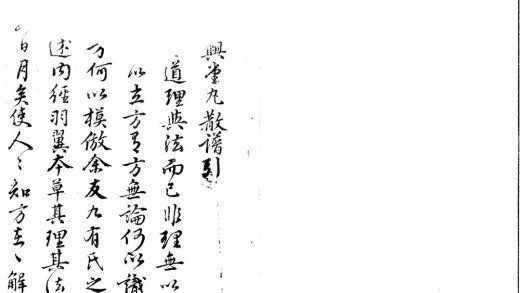 興堂丸散譜引
道理與法而已非理無以
以立方有方無論何以識
方何以模倣余友九有氏之
述内經羽翼本草其理其法
日月矣使人〻知方在〻解